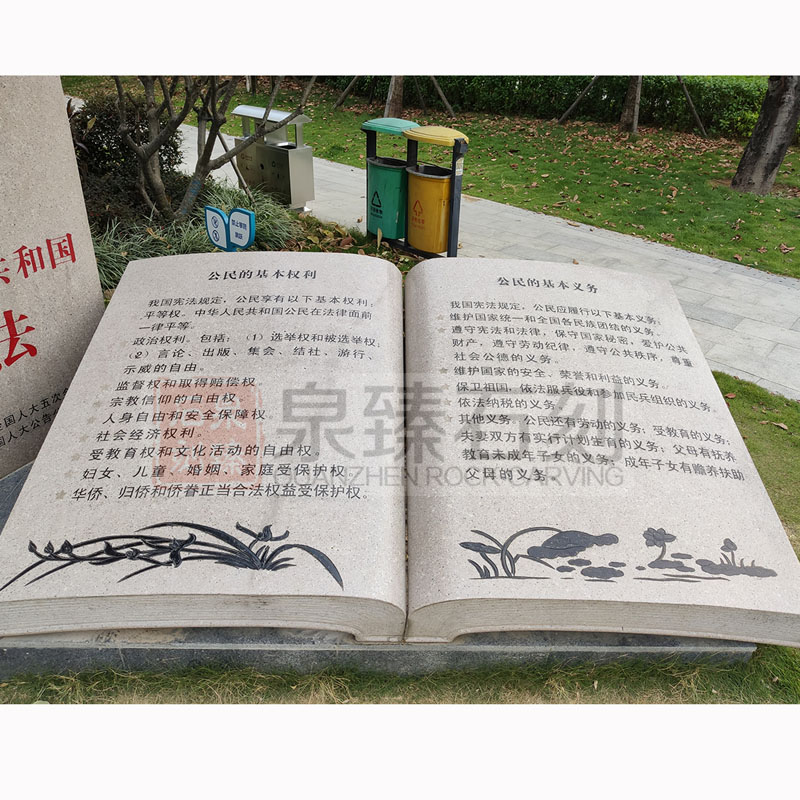 共和国
法
国人大五次会
国人大公告
公民的基本权利
我国宪法规定，公民享有以下基本权利：
平等权。中华人民共和国公民在法律面前
一律平等。
政治权利。包括：（1）选举权和被选举权；
（2）言论、出版、集会、结社、游行、
示威的自由。
监督权和取得赔偿权。
宗教信仰的自由权。
人身自由和安全保障权。
社会经济权利。
受教育权和文化活动的自由权。
妇女、儿童、婚姻、家庭受保护权。
华侨、归侨和侨眷正当合法权益受保护权。
公民的基本义务
我国宪法规定，公民应履行以下基本义务：
维护国家统一和全国各民族团结的义务。
遵守宪法和法律，保守国家秘密，爱护公共
财产，遵守劳动纪律，遵守公共秩序，尊重
社会公德的义务。
维护国家的安全、荣誉和利益的义务。
保卫祖国，依法服兵役和参加民兵组织的义务。
依法纳税的义务。
其他义务。公民还有劳动的义务；受教育的义务；
夫妻双方有实行计划生育的义务；父母有抚养
教育未成年子女的义务；成年子女有赡养扶助
父母的义务。
泉臻石刻
QUANZHEN ROCK CARVING